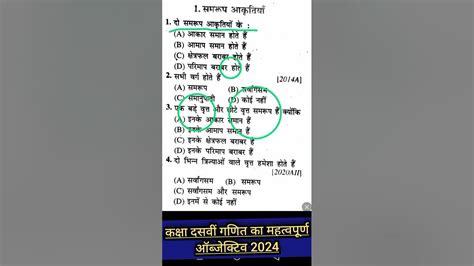 1. समरूप आकृतियाँ
1. दो समरूप आकृतियों के :
(A) आकार समान होते हैं
(B) आमाप समान होते हैं
(C) क्षेत्रफल बराबर होते हैं
(D) परिमाप बराबर होते हैं
2. सभी वर्ग होते हैं [2014A]
(A) समरूप (B) सर्वांगसम
(C) समानुपाती (D) कोई नहीं
3. एक बड़े वृत्त और छोटे वृत्त समरूप हैं क्योंकि
(A) इनके आकार समान हैं
(B) इनके आमाप समान हैं
(C) इनके क्षेत्रफल बराबर हैं
(D) इनके परिमाप बराबर हैं
4. दो भिन्न त्रिज्याओं वाले वृत्त हमेशा होते हैं
[2020AII]
(A) सर्वांगसम (B) समरूप
(C) सर्वांगसम और समरूप
(D) इनमें से कोई नहीं
कक्षा दसवीं गणित का महत्वपूर्ण
ऑब्जेक्टिव 2024